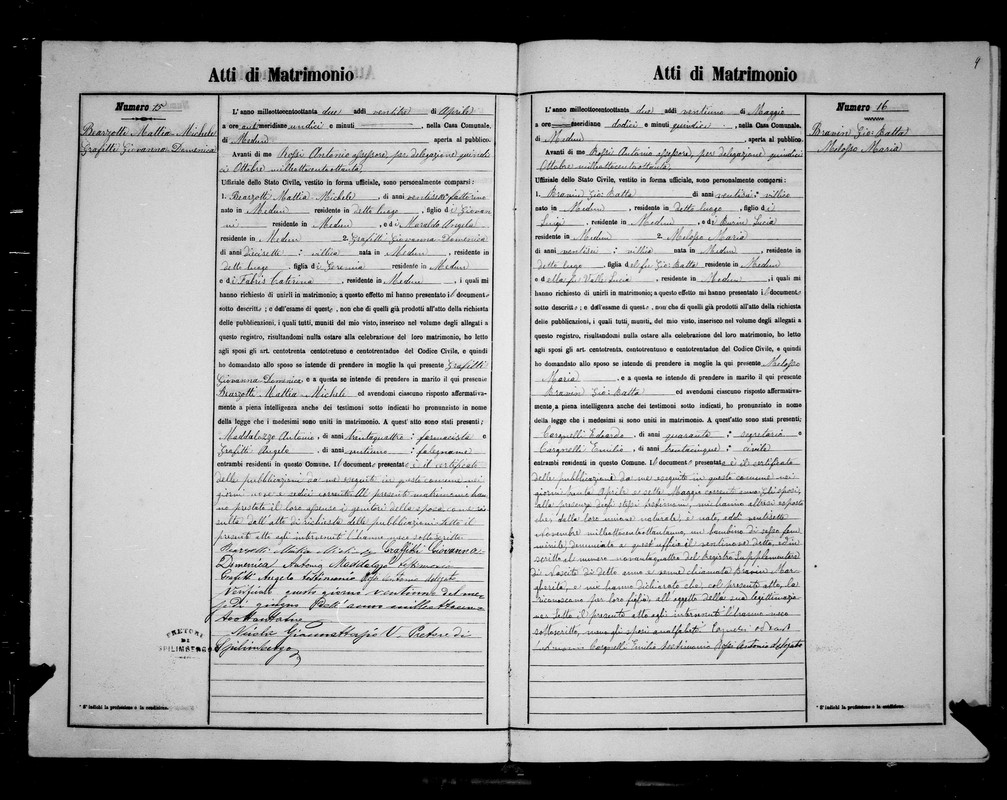 Atti di Matrimonio
Numero 15
Bearzotti Mattia Michele
Grafitti Giovanna Domenica
L'anno milleottocentottanta due addì ventitre di Aprile
a ore antimeridiane undici e minuti , nella Casa Comunale
di Medun , aperta al pubblico.
Avanti di me Rossi Antonio assessore, per delegazione quindi
ci Ottobre milleottocentoottanta,
Uffiziale dello Stato Civile, vestito in forma ufficiale, sono personalmente comparsi:
1. Bearzotti Mattia Michele , di anni ventisette fattorino
nato in Medun residente in detto luogo , figlio di Giovan
ni residente in Medun , e di Maraldo Angela
residente in Medun 2. Grafitti Giovanna Domenica
di anni diecisette : villica nata in Medun , residente in
detto luogo , figlia di Geremia residente in Medun
e di Fabris Caterina , residente in Medun , i quali mi
hanno richiesto di unirli in matrimonio; a questo effetto mi hanno presentato il documento
sotto descritto; e dall'esame di questo, non che di quelli già prodotti all'atto della richiesta
delle pubblicazioni, i quali tutti, muniti del mio visto, inserisco nel volume degli allegati a
questo registro, risultandomi nulla ostare alla celebrazione del loro matrimonio, ho letto
agli sposi gli art. centotrenta centotretuno e centotrentadue del Codice Civile, e quindi
ho domandato allo sposo se intende di prendere in moglie la qui presente Grafitti
Giovanna Domenica e a questa se intende di prendere in marito il qui presente
Bearzotti Mattia Michele ed avendomi ciascuno risposto affermativa-
mente a piena intelligenza anche dei testimoni sotto indicati, ho pronunziato in nome
della legge che i medesimi si sono uniti in matrimonio. A quest'atto sono stati presenti;
Maddalozzo Antonio , di anni trentaquattro : farmacista e
Grafitti Angelo , di anni ventiuno : falegname
entrambi residenti in questo Comune. Il documento presentato è il certificato
delle pubblicazioni da me eseguite in questo comune nei
giorni nove e sedici corrente. Al presente matrimonio han
no prestato il loro assenso i genitori della sposa come ri
sulta dall'atto di richiesta delle pubblicazioni. Letto il
presente atto agli intervenuti l'hanno meco sottoscritto
Bearzotti Mattia Michele Graffitti Giovanna
Domenica Antonio Maddalozzo testimonio
Grafitti Angelo testimonio Rossi Antonio delegato
Verificato questo giorno ventiuno del me
se di giugno milleottocen
toottantadue
V. Pretore di
Spilimbergo
PRETURA
DI
SPILIMBERGO
* S'indichi la professione o la condizione.
9
Atti di Matrimonio
Numero 16
Bravin Gio: Batta
Melosso Maria
L'anno milleottocentoottanta due addì ventiuno di Maggio
a ore meridiane dodici e minuti quindici , nella Casa Comunale.
di Medun , aperta al pubblico.
Avanti di me Rossi Antonio assessore, per delegazione quindici
Ottobre milleottocentoottanta,
Uffiziale dello Stato Civile, vestito in forma ufficiale, sono personalmente comparsi:
1. Bravin Gio: Batta , di anni ventisei: villico
nato in Medun , residente in detto luogo , figlio di
Luigi , residente in Medun e di Burin Lucia
residente in Medun 2. Melosso Maria
di anni ventisei : villica nata in Medun , residente in
detto luogo , figlia del fu Gio: Batta residente in Medun
e della fu Valle Lucia , residente in Medun , i quali mi
hanno richiesto di unirli in matrimonio; a questo effetto mi hanno presentato il documento
sotto descritto; e dall'esame di questo, non che di quelli già prodotti all'atto della richiesta
delle pubblicazioni, i quali tutti, muniti del mio visto, inserisco nel volume degli allegati a
questo registro, risultandomi nulla ostare alla celebrazione del loro matrimonio, ho letto
agli sposi gli art. centotrenta, centotrentuno e centotrentadue del Codice Civile, e quindi
ho domandato allo sposo se intende di prendere in moglie la qui presente Melosso
Maria , e a questa se intende di prendere in marito il qui presente
Bravin Gio: Batta ed avendomi ciascuno risposto affermativa-
mente, a piena intelligenza anche dei testimoni sotto indicati, ho pronunziato in nome
della legge che i medesimi si sono uniti in matrimonio. A quest'atto sono stati presenti;
Cargnelli Edoardo , di anni quaranta : segretario e
Cargnelli Emilio , di anni trentacinque : civile
entrambi residenti in questo Comune. Il documento presentato è il certificato
delle pubblicazioni da me eseguite in questo comune nei
giorni trenta Aprile e sette Maggio corrente anno. Gli sposi,
alla presenza degli stessi testimoni, mi hanno altresì esposto
che, dalla loro unione naturale, è nato, addì ventisette
Novembre milleottocentoottantauno, un bambino di sesso fem
minile, denunciato a quest'uffizio il ventinove detto, ed in
scritto al numero novantaquattro del Registro Supplementare
di Nascita di detto anno e venne chiamata Bravin Mar
gherita, e mi hanno dichiarato che, col presente atto, la
riconoscono per loro figlia, all'oggetto della sua legittimazio
ne. Letto il presente atto agli intervenuti l'hanno meco
sottoscritto, meno gli sposi analfabeti. Cargnelli Edoardo
testimonio Cargnelli Emilio testimonio Rossi Antonio delegato
* S'indichi la professione o la condizione.